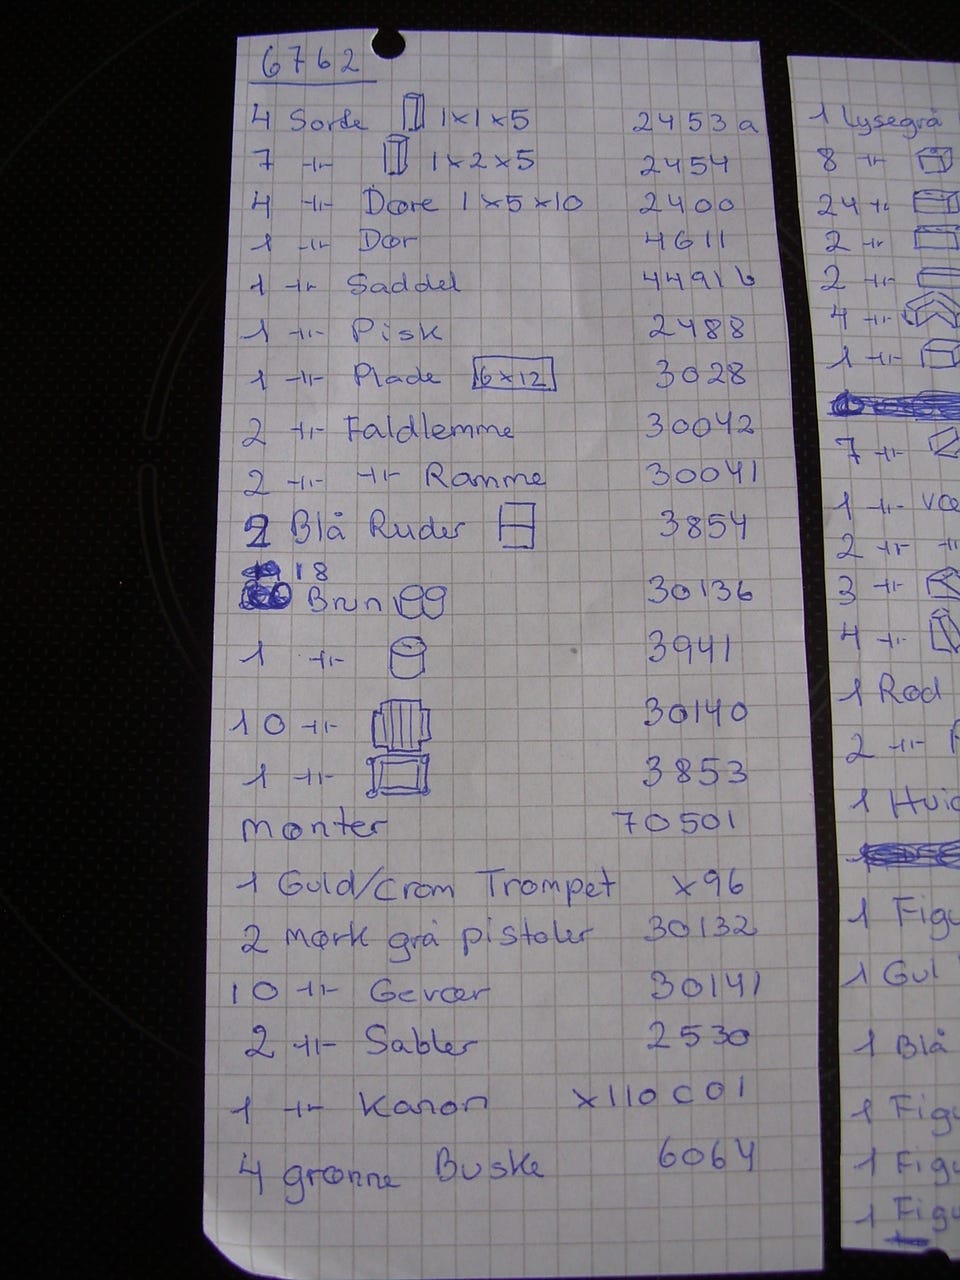 6762
4 Sorte 1x1x5 2453a
7 -11- 1x2x5 2454
4 -11- Døre 1x5x10 2400
1 -11- Dør 4611
1 -11- Saddel 4491b
1 -11- Pisk 2488
1 -11- Plade 6x12 3028
2 -11- Faldlemme 30042
2 -11- -11- Ramme 30041
2 Blå Ruder 3854
18
Brun 30136
1 -11- 3941
10 -11- 30140
1 -11- 3853
mønter 70501
1 Guld/Crom Trompet x96
2 mørk grå pistoler 30132
10 -11- Gevær 30141
2 -11- Sabler 2530
1 -11- Kanon x110c01
4 grønne Buske 6064
1 Lysegrå
8 -11-
24 -11-
2 -11-
2 -11-
4 -11-
1 -11-
7 -11-
1 -11- væ
2 -11- -11
3 -11-
4 -11-
1 Rød
2 -11-
1 Hvid
1
1 Figu
1 Gul
1 Blå
1 Figu
1 Figu
1 Figu